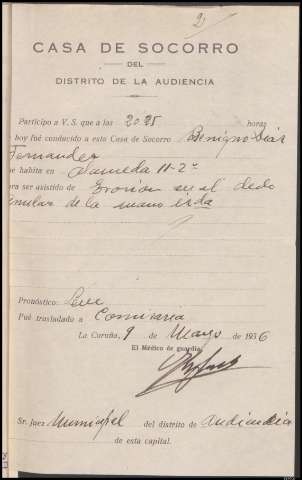 2)
CASA DE SOCORRO
DEL
DISTRITO DE LA AUDIENCIA
Participo a V. S. que a las 20-25 horas
hoy fué conducido a esta Casa de Socorro Benigno Diaz
Fernandez
e habita en Alameda 11-2º
ra ser asistido de Erosion en el dedo
anular de la mano izda
Pronóstico: Leve
Fué trasladado a Comisaria
La Coruña, 9 de Mayo de 1936
El Médico de guardia,
Sr. Juez Municipal del distrito de Audiencia
de esta capital.